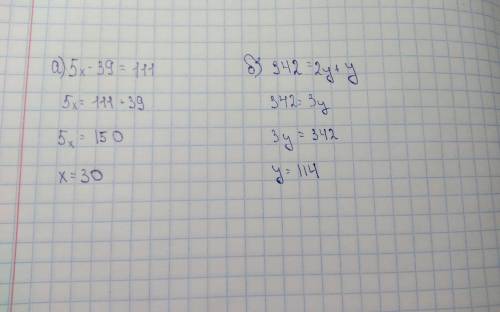 а) 5x - 39 = 111
5x = 111 + 39
5x = 150
x = 30
б) 342 = 2y + y
342 = 3y
3y = 342
y = 114